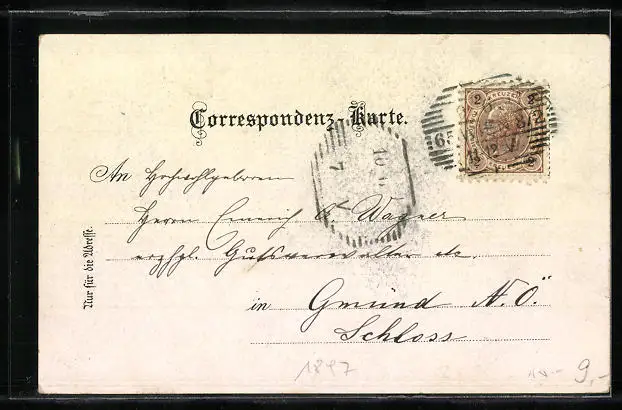 Correspondenz-Karte.
An Hochwohlgeboren
Herrn Emerich A. Wagner
erzhgl. Gutsverwalter etc.
in Gmünd N.Ö.
Schloss
Nur für die Adresse.
2 KREUZER 2
1897
9,-